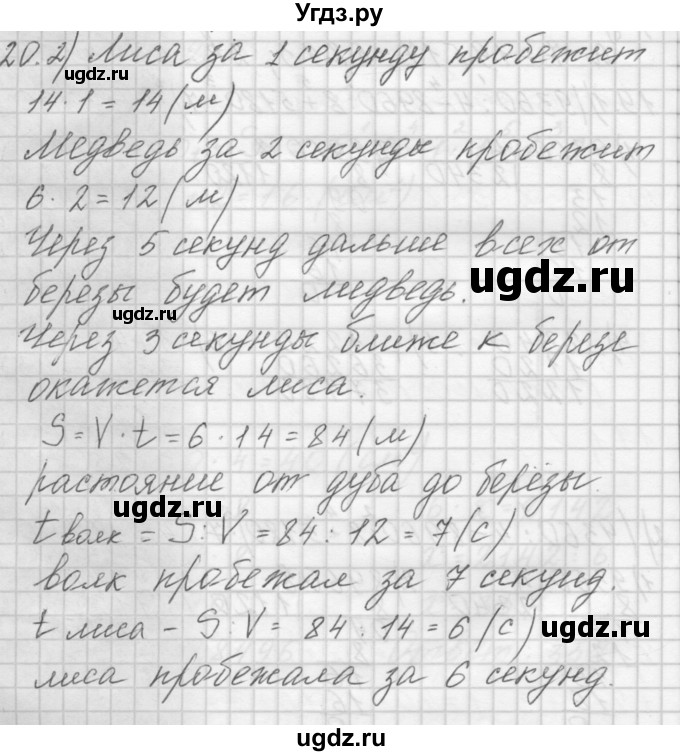 Угдз.ру
20.2) Лиса за 1 секунду пробежит
ugdz.ru
14·1=14(м)
Медведь за 2 секунды пробежит
6·2=12(м)
ugdz.ru
Через 5 секунд дальше всех от
ugdz.ru
березы будет медведь.
ugdz.ru
Через 3 секунды ближе к березе
окажется лиса.
S=V·t=6·14=84(м)
растояние от дуба до берёзы
ugdz.ru
t волк = S:V=84:12=7(с)
волк пробежал за 7 секунд.
t лиса - S:V= 84:14=6(с)
ugdz.ru
лиса пробежала за 6 секунд.
ugdz.ru